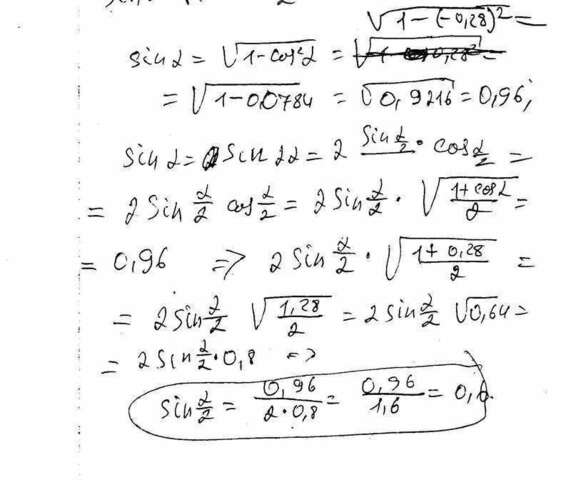 √1-(-0,28)² =
sin α = √1-cos²α = 
= √1-0,0784 = √0,9216 = 0,96;
sin α = sin 2α = 2 sin α/2 · cos α/2 =
= 2 sin α/2 cos α/2 = 2 sin α/2 · √(1+cos α)/2 =
= 0,96 => 2 sin α/2 · √(1+0,28)/2 =
= 2 sin α/2 √1,28/2 = 2 sin α/2 √0,64 =
= 2 sin α/2 · 0,8 =>
sin α/2 = 0,96/2·0,8 = 0,96/1,6 = 0,6.